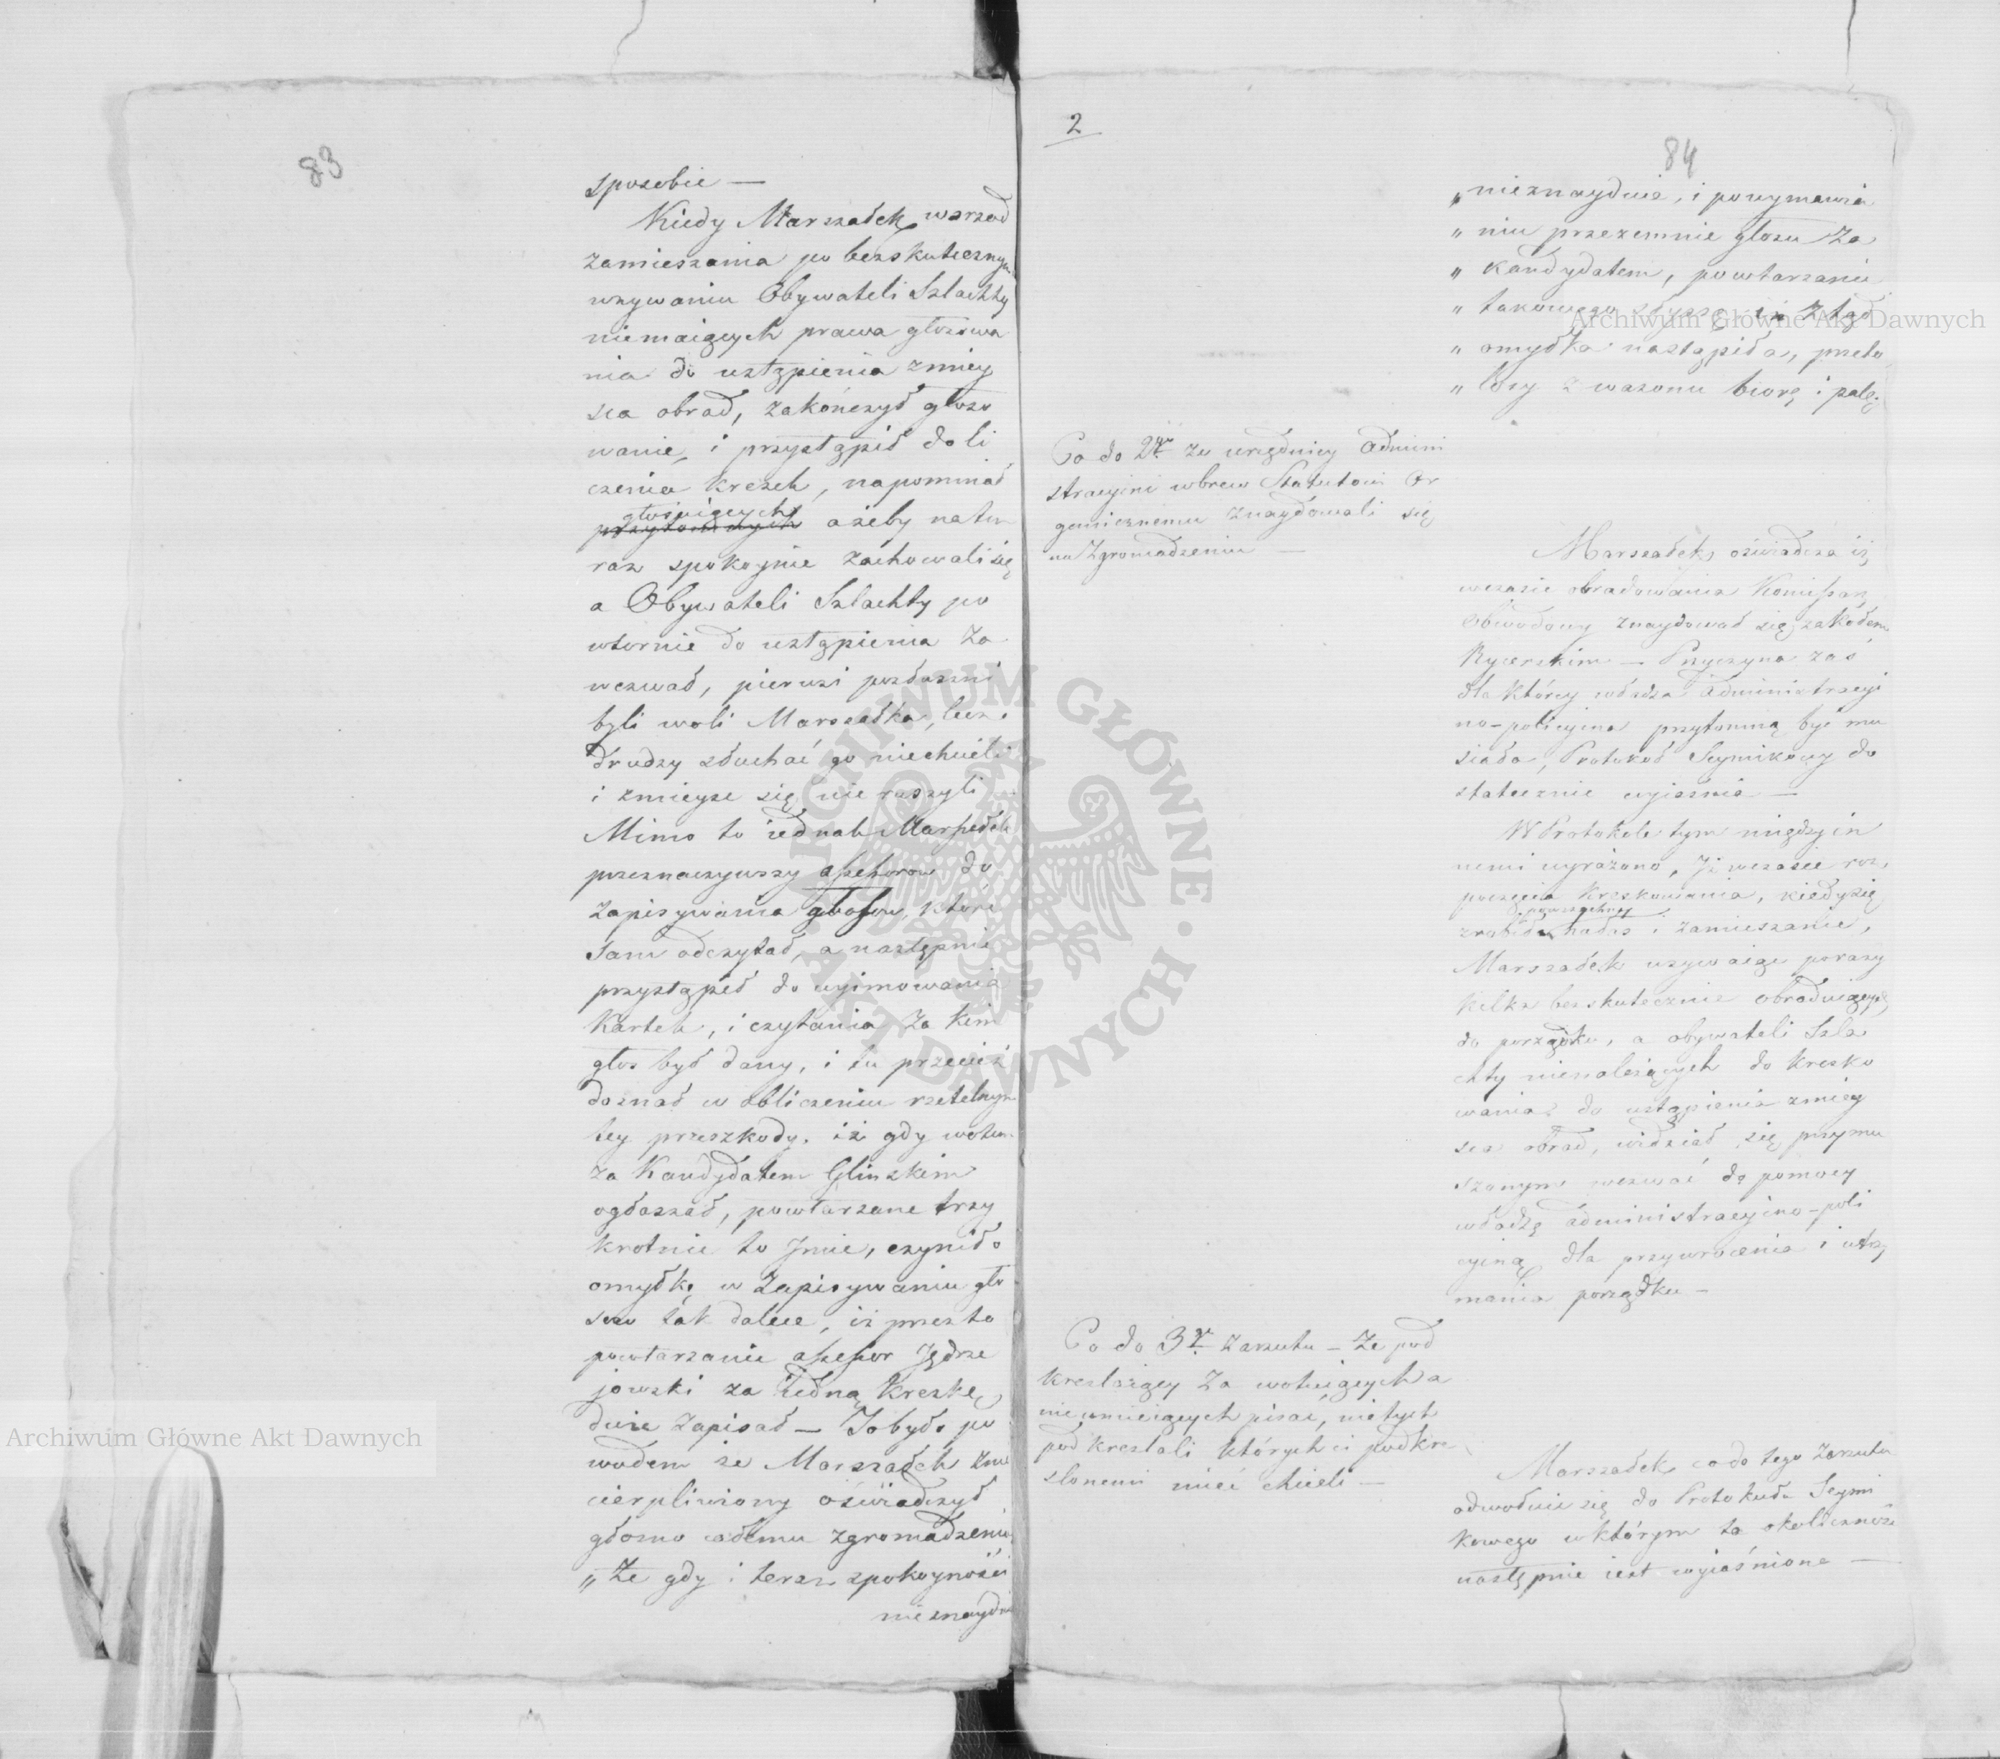 83
sposobie —
Kiedy Marszałek wśrzód
zamieszania po bezskutecznym
wzywaniu Obywateli Szlachty
niemaiących prawa głosowa
nia do ustąpienia zmiey
sca obrad, zakończył głoso
wanie, i przystąpił do li
czenia kresek, napominał
głosuiących
przytomnych ażeby na ten
raz spokoynie zachowali się
a Obywateli Szlachty po
wtornie do ustąpienia za
wezwał, pierwsi posłuszni
byli woli Marszałka, lecz
drudzy słuchać go niechcieli
i zmieysc się nie ruszyli —
Mimo to iednak Marszałek
przeznaczywszy assessorow do
zapisywania głosow, które
sam odczytał, a następnie
przystąpił do wyimowania
Kartek, i czytania za kim
głos był dany, i tu przecież
doznał w obliczeniu rzetelnym
tey przeszkody, iż gdy wotum
za Kandydatem Glinskim
ogłaszał, powtarzane trzy
krotnie to Jmie, czyniło
omyłkę w zapisywaniu gło
sow tak dalece, iż przez to
powtarzanie assessor Jędrze
jowski za iedną kreskę,
dwie zapisał — To było po
wodem że Marszałek znie
cierpliwiony oświadczył
głośno całemu zgromadzeniu
„ Że gdy i teraz spokoyność
nieznaydu
2
84
„ nieznayduie, i po wymawia
„ niu przezemnie głosu za
„ kandydatem, powtarzanie
„ takowego słyszę, iż ztąd
„ omyłka nastąpiła, przeto
„ losy z wazonu biorę i palę.
Co do 2go że urzędnicy admini
stracyini wbrew Statutowi Or
ganicznemu znaydowali się
na Zgromadzeniu —
Marszałek oświadcza iż
wczasie obradowania Kommissarz
Obwodowy znaydował się za kołem
Rycerskim — Przyczyna zaś
dla którey władza administracyi
no-policyina przytomną być mu
siała, Protokoł Seymikowy do
statecznie wyiaśnia —
W Protokole tym między in
nemi wyrażono, Jż wczasie roz
poczęcia kreskowania, kiedy się
powszechny
zrobił hałas i zamieszanie,
Marszałek wzywaiąc po razy
kilka bezskutecznie obraduiących
do porządku, a obywateli Szla
chty nienależących do kresko
wania do ustąpienia zmiey
sca obrad, widział się przymu
szonym wezwać do pomocy
władzę administracyino-poli
cyiną dla przywrócenia i utrzy
mania porządku —
Co do 3go Zarzutu — Że pod
kreślaiący za wotuiących a
nieumieiących pisać, nietych
podkreślali których ci podkre
ślonemi mieć chcieli —
Marszałek co do tego zarzutu
odwołuie się do Protokułu Seymi
kowego wktórym ta okoliczność
następnie iest wyiaśniona —
Archiwum Główne Akt Dawnych
Archiwum Główne Akt Dawnych
ARCHIWUM GŁÓWNE AKT DAWNYCH